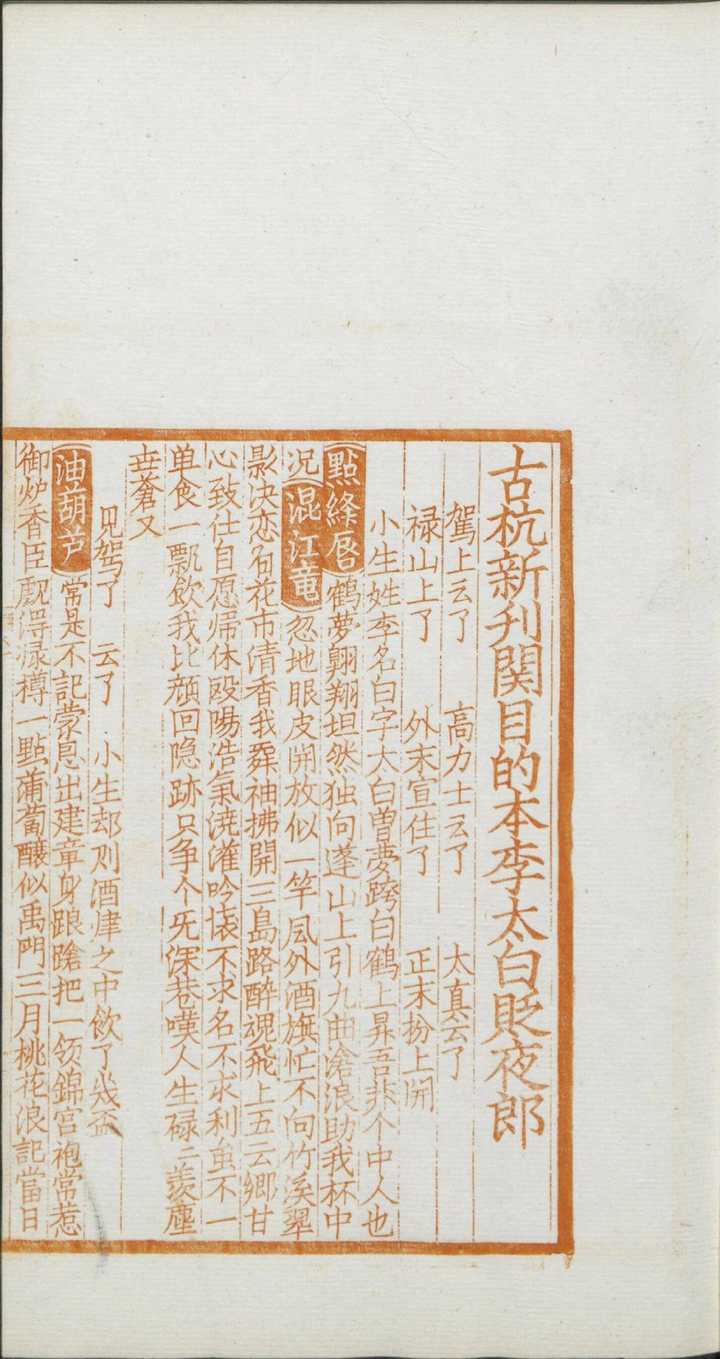 古杭新刊関目的本李太白貶夜郎
駕上云了　高力士云了　太真云了
禄山上了　外末宣住了　正末扮上開
小生姓李名白字太白曽夢跨白鶴上昇吾非个中人也
點絳唇　鶴夢翺翔坦然独向蓬山上引九曲滄浪助我杯中
况　混江竜　忽地眼皮開放似一竿风外酒旗忙不向竹溪翠
影决恋匂花市清香我舞袖拂開三島路醉魂飛上五云鄉甘
心致仕自愿帰休殹陽浩氣澆灌吟懐不求名不求利虽不一
单食一瓢飲我比顔回隐跡只争个无深巷嘆人生碌〻羨塵
世蒼又
見驾了　云了　小生却则酒肆之中飲了幾盃
油葫芦　常是不記蒙恩出建章身踉蹌把一领錦宫袍常惹
御炉香臣覷淂渌樽一點蒲萄釀似禹門三月桃花浪記當日